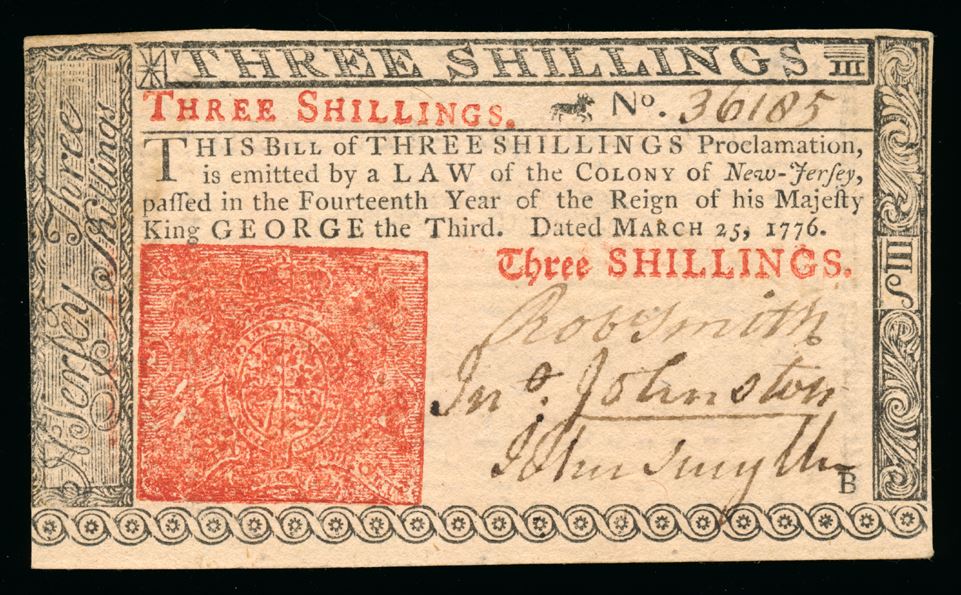 THREE SHILLINGS III
THREE SHILLINGS. No. 36185
THIS BILL of THREE SHILLINGS Proclamation,
is emitted by a LAW of the COLONY of New-Jersey,
paſſed in the Fourteenth Year of the Reign of his Majeſty
King GEORGE the Third. Dated MARCH 25, 1776.
Three SHILLINGS.
Robt Smith
Jno. Johnston
John Smyth
B
N Jerſey Three
Shillings
III S